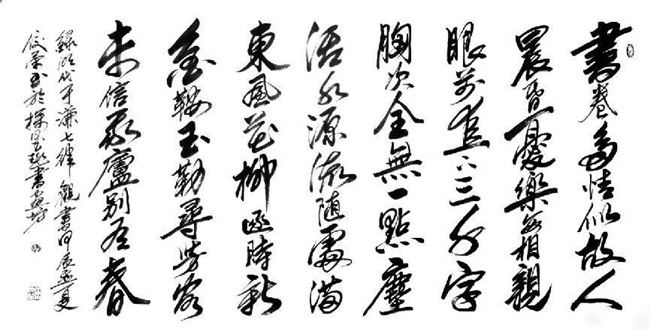 書卷多情似故人
晨昏憂樂每相親
眼前直下三千字
胸次全無一點塵
活水源流隨處滿
東風花柳逐時新
金鞍玉勒尋芳客
未信我廬別有春
錄明代于謙七律觀書甲辰孟夏